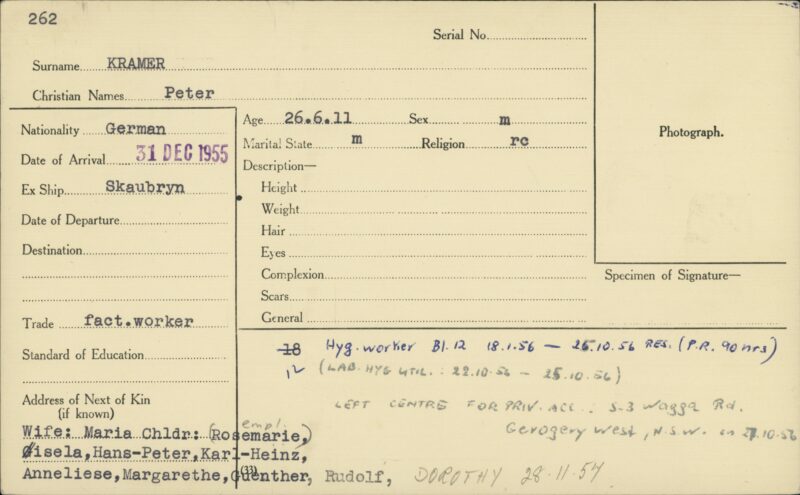 262
Serial No.
Surname KRAMER
Christian Names Peter
Nationality German
Date of Arrival 31 DEC 1955
Ex Ship Skaubryn
Date of Departure
Destination
Trade fact.worker
Standard of Education
Address of Next of Kin
(if known)
Wife: Maria Chldr: (Rosemarie,) empl.
Gisela,Hans-Peter,Karl-Heinz,
Anneliese,Margarethe,Guenther, Rudolf, DOROTHY 28.11.57
(33)
Age 26.6.11 Sex m
Marital State m Religion rc
Description—
Height
Weight
Hair
Eyes
Complexion
Scars
General
Photograph.
Specimen of Signature—
18 Hyg. worker Bl. 12 18.1.56 — 26.10.56 RES. (P.R. 90 hrs)
12 (LAB. HYG UTIL. : 22.10.56 — 25.10.56)
LEFT CENTRE FOR PRIV. ACC. : S-3 Wagga Rd.
Gerogery West, N.S.W. on 27.10.56